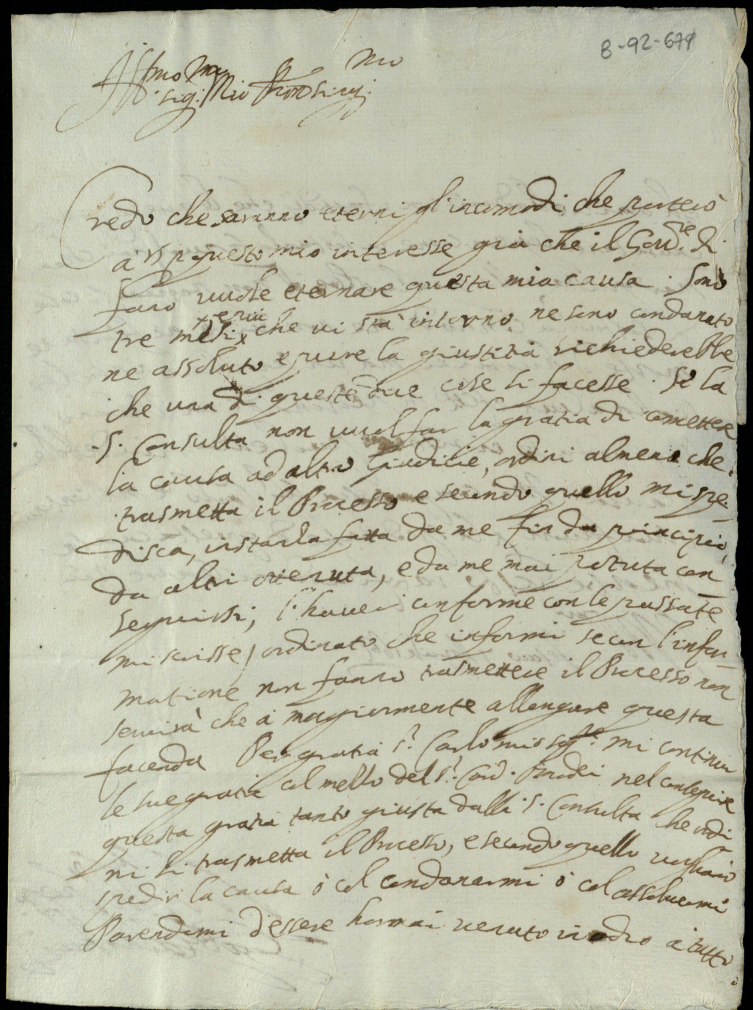 8-92-679
Ill.mo
sig. mio
Credo che saranno eterni gl'incomodi, che porterò
à VS p questo mio interesse già che il Gov.re di
fano vuole eternare questa mia causa. Sono
tre mesi, e più che vi stà intorno, ne sono condanato
ne assoluto e pure la giustitia richiederebbe
che una di queste due cose si facesse. Se la
S. Consulta non vuol far la gratia di cometter
la causa ad altro Giudicie, ordini almeno che
trasmetta il Processo e secondo quello mi spe
disca, instanza fatta da me fin da principio,
da altri ottenuta, e da me mai potuta con
seguirsi; l'haver conforme con le passate
mi scrisse, ordinato che informi se con l'infor
matione non fanno trasmettere il Processo non
servirà che à maggiormente allongare questa
facenda Per gratia S.r Carlo mio mi continui
le sue gratie col mezzo del S.r Card. nel conseguire
questa gratia tanto giusta dalla S. Consulta che ordi
ni si trasmetta il Processo, e secondo quello vogliano
spedir la causa ò col condanarmi ò col assolvermi
Parendomi d'essere hormai venuto in odio à tutto